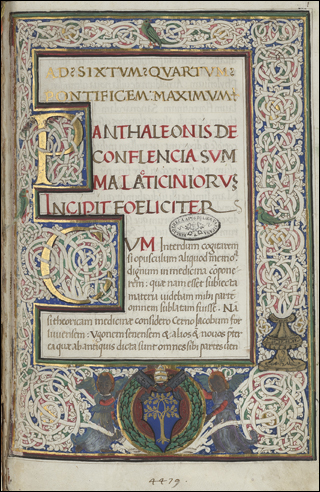 AD SIXTUM QUARTUM
PONTIFICEM MAXIMUM
PANTHALEONIS DE
CONFLENCIA SUM
MA LACTICINIORUS
INCIPIT FOELICITER
CUM Interdum cogitarem
si opusculum aliquod memo
dignum in medicina
nam esset subiecta
materia videbam mihi
omnem sublatam fuisse
medicinae considero Cerno Jacobum for
Ugonem senensem & alios novos
quae ab antiquis dicta sunt omnes sibi partes
4479